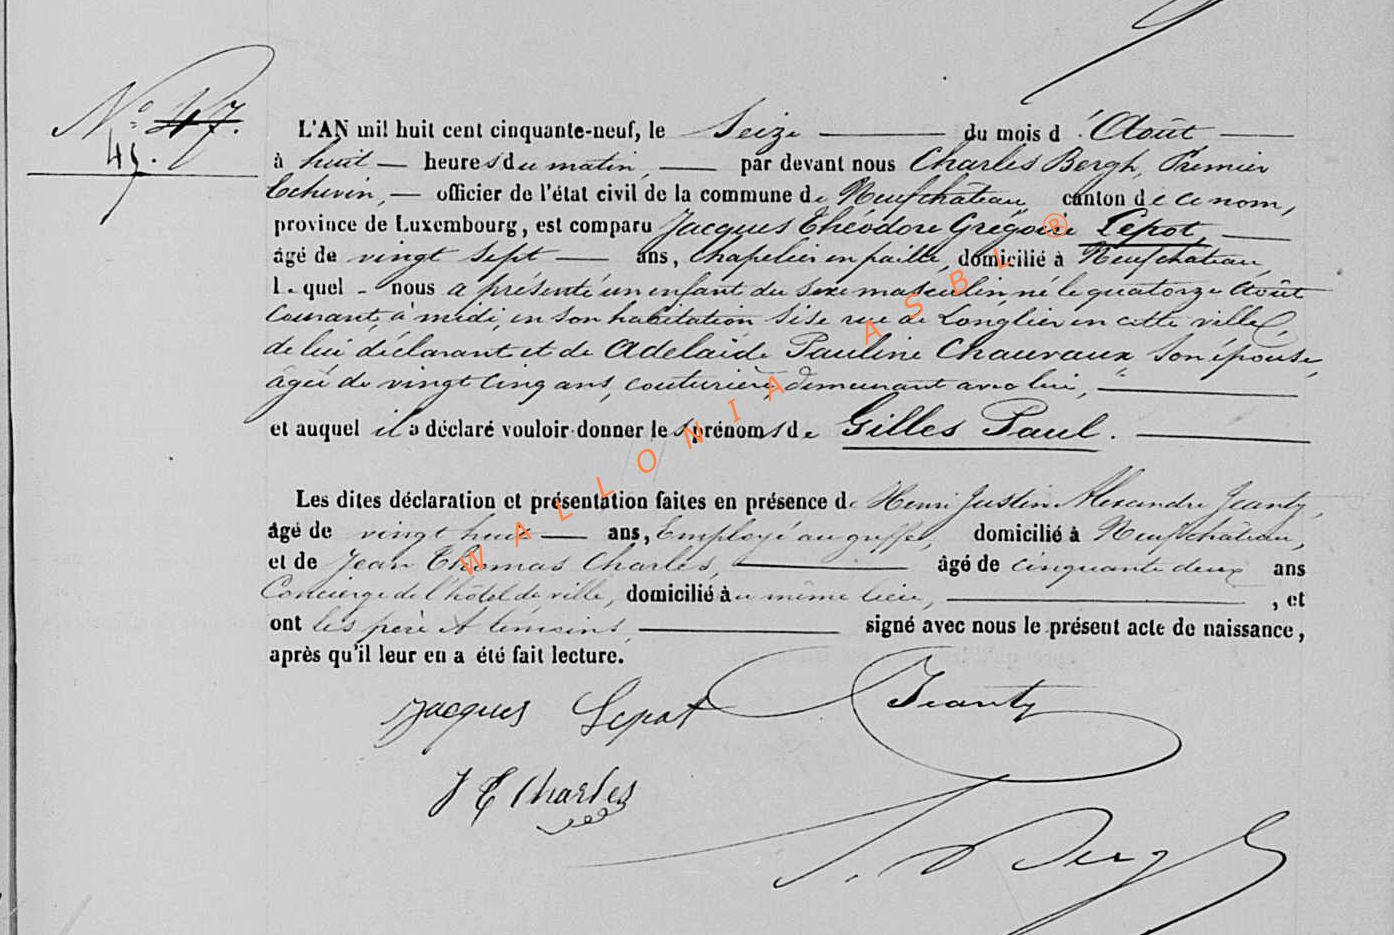 N° 47.
45.
L'AN mil huit cent cinquante-neuf, le Seize du mois d'Août
à huit heures du matin, par devant nous Charles Bergh, Premier
Echevin, officier de l'état civil de la commune de Neufchâteau canton de ce nom,
province de Luxembourg, est comparu Jacques Théodore Grégoire Lepot,
âgé de vingt sept ans, Chapelier en paille, domicilié à Neufchâteau,
lequel nous a présenté un enfant du sexe masculin, né le quatorze Août
Courant, à midi, en son habitation sise rue de Longlier en cette ville,
de lui déclarant et de Adelaïde Pauline Chauvaux son épouse,
âgée de vingt cinq ans, couturière, demeurant avec lui,
et auquel il a déclaré vouloir donner les prénoms de Gilles Paul.
Les dites déclaration et présentation faites en présence de Henri Justin Alexandre Jeanty,
âgé de vingt huit ans, Employé au greffe, domicilié à Neufchâteau,
et de Jean Thomas Charles, âgé de cinquante deux ans
Concierge de l'hôtel de ville, domicilié au même lieu, , et
ont les père et témoins, signé avec nous le présent acte de naissance,
après qu'il leur en a été fait lecture.
Jacques Lepot Jeanty
J T Charles
C. Bergh
WALLONIA ASBL ®